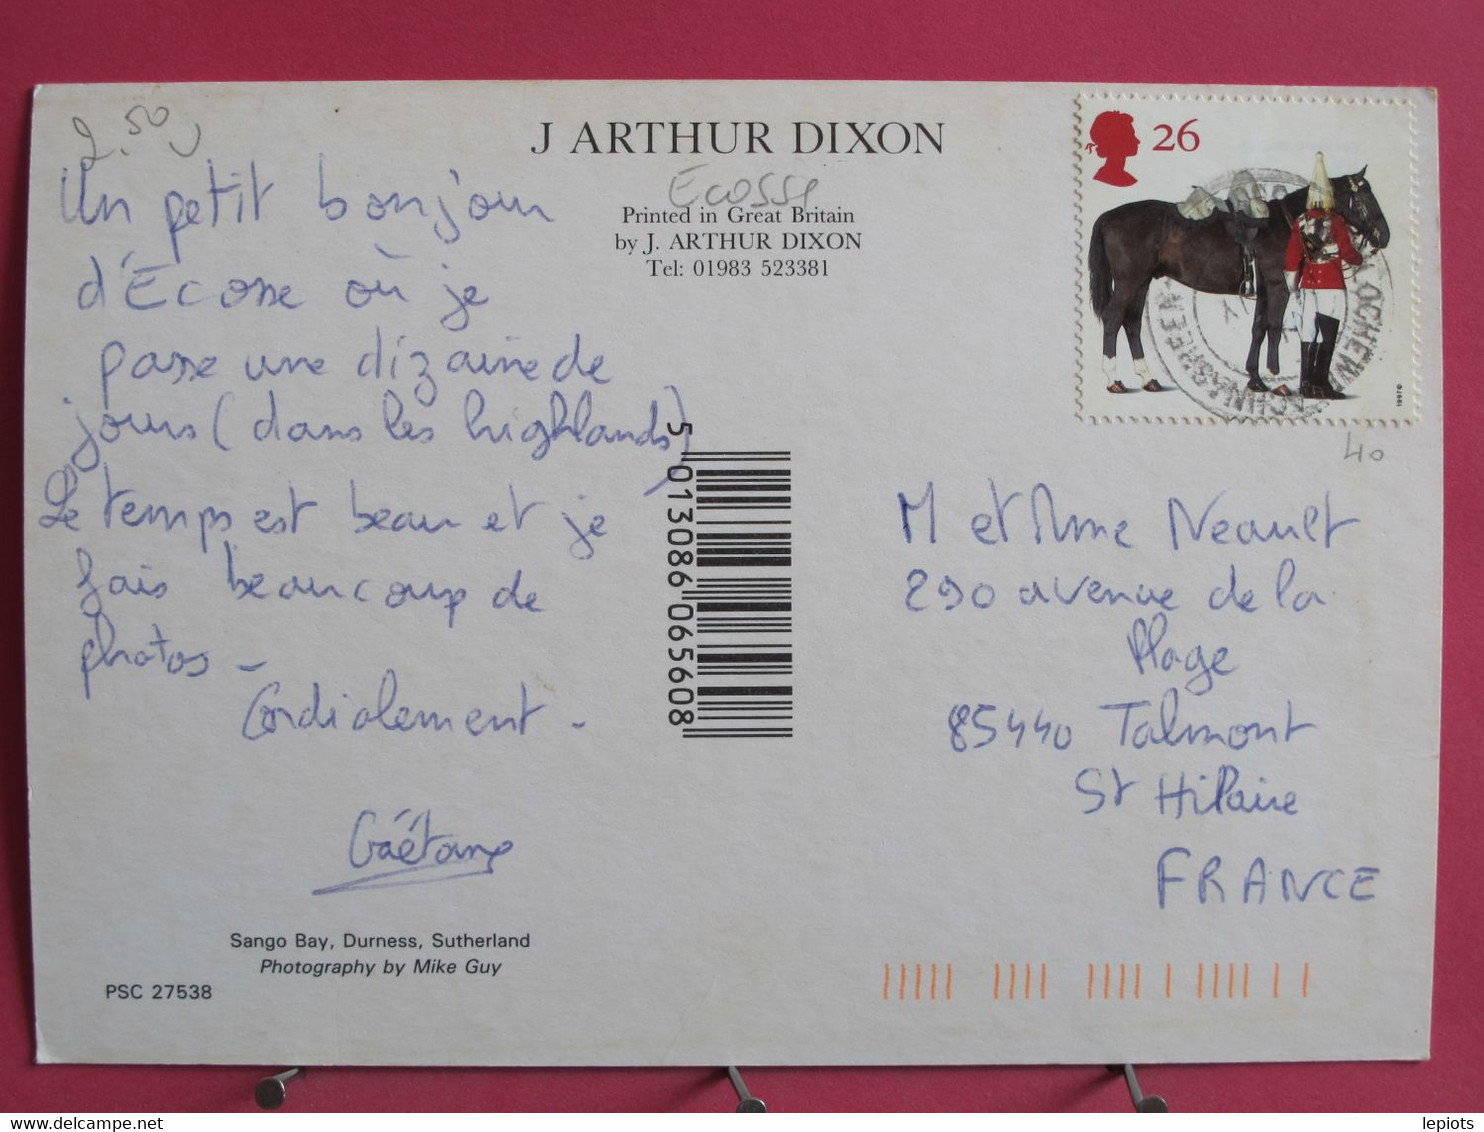 2.50
J ARTHUR DIXON
Ecosse
Printed in Great Britain
by J. ARTHUR DIXON
Tel: 01983 523381
26
1997©
40
Un petit bonjour
d'Ecosse où je
passe une dizaine de
jours (dans les highlands)
Le temps est beau et je
fais beaucoup de
photos -
Cordialement -
Gaétane
5 013086 065608
M et Mme Neault
290 avenue de la
Plage
85440 Talmont
St Hilaire
FRANCE
Sango Bay, Durness, Sutherland
Photography by Mike Guy
PSC 27538
lepiots